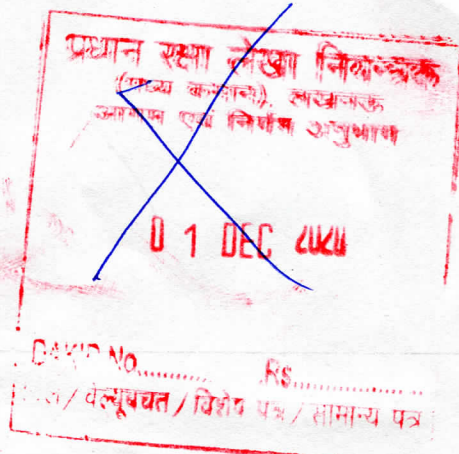 प्रधान रक्षा लेखा नियन्त्रक
(मध्य कमान), लखनऊ
आगमन एवं निर्गम अनुभाग
0 1 DEC 2020
DAK ID No............ Rs...............
/ वेल्यूबचत / विशेष पत्र / सामान्य पत्र